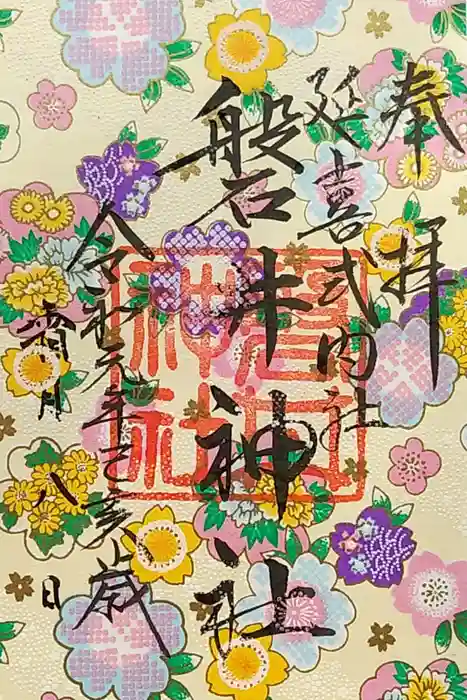 奉拝
延喜式内社
磐井神社
令和元年己亥歳
霜月八日
磐井
神社